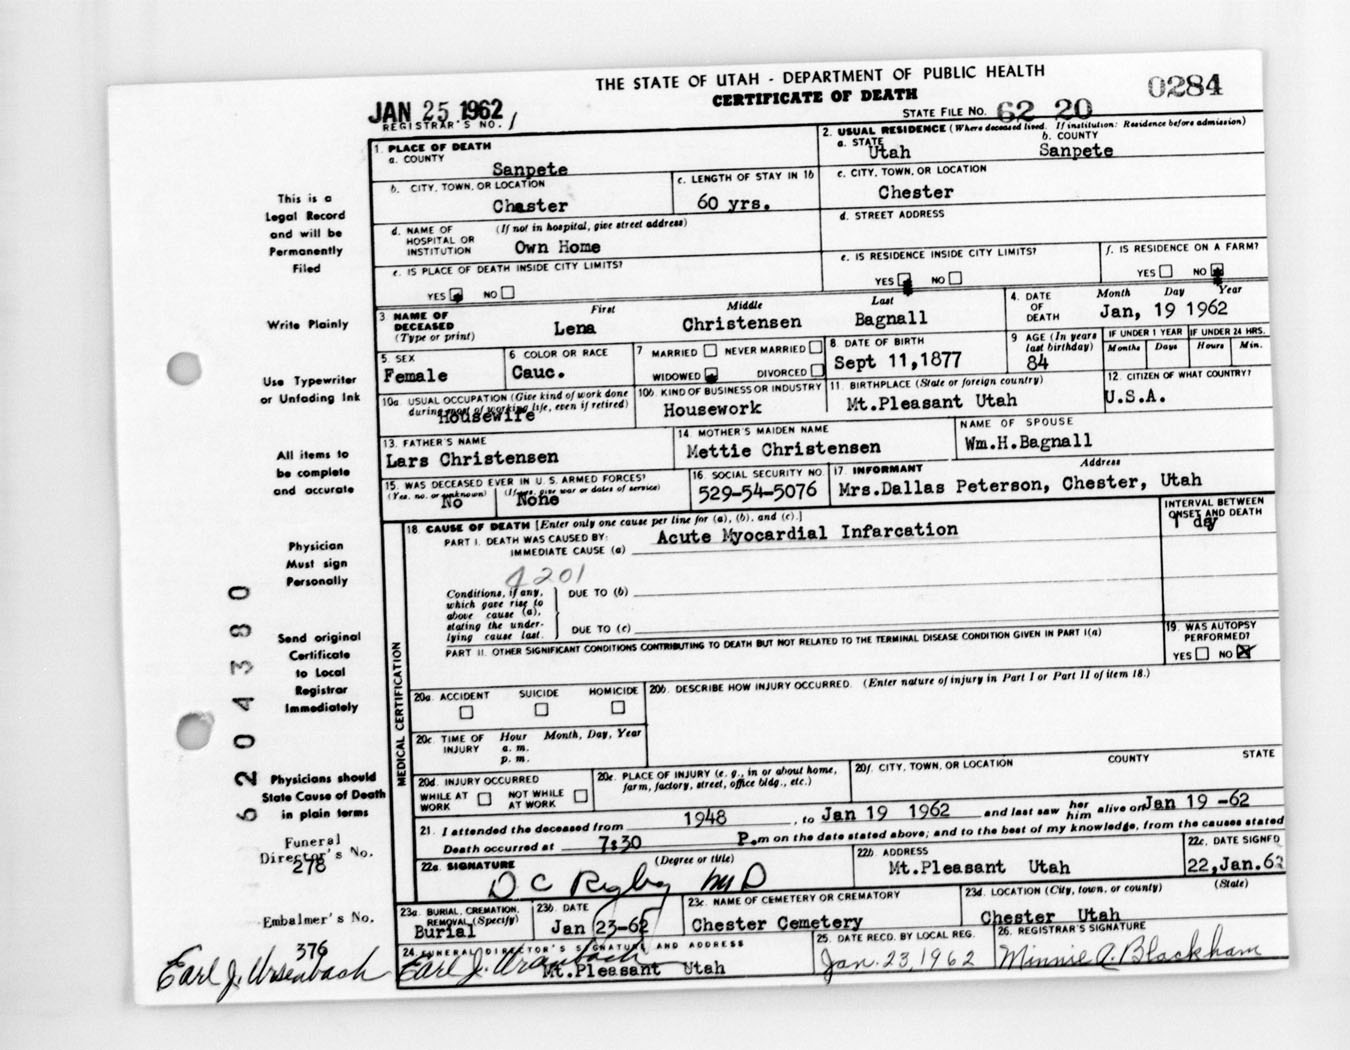 THE STATE OF UTAH - DEPARTMENT OF PUBLIC HEALTH
CERTIFICATE OF DEATH
0284
JAN 25 1962
REGISTRAR'S NO. 1
STATE FILE NO. 62 20
1. PLACE OF DEATH
a. COUNTY
Sanpete
2. USUAL RESIDENCE (Where deceased lived. If institution: Residence before admission)
a. STATE Utah
b. COUNTY Sanpete
b. CITY, TOWN, OR LOCATION
Chester
c. LENGTH OF STAY IN 1b
60 yrs.
c. CITY, TOWN, OR LOCATION
Chester
d. NAME OF HOSPITAL OR INSTITUTION
(If not in hospital, give street address)
Own Home
d. STREET ADDRESS
e. IS PLACE OF DEATH INSIDE CITY LIMITS?
YES NO
e. IS RESIDENCE INSIDE CITY LIMITS?
YES NO
f. IS RESIDENCE ON A FARM?
YES NO
3 NAME OF DECEASED
(Type or print)
First Middle Last
Lena Christensen Bagnall
4. DATE OF DEATH
Month Day Year
Jan, 19 1962
5. SEX
Female
6 COLOR OR RACE
Cauc.
7 MARRIED NEVER MARRIED
WIDOWED DIVORCED
8 DATE OF BIRTH
Sept 11,1877
9 AGE (In years last birthday)
84
IF UNDER 1 YEAR
Months Days
IF UNDER 24 HRS.
Hours Min.
10a. USUAL OCCUPATION (Give kind of work done during most of working life, even if retired)
Housewife
10b. KIND OF BUSINESS OR INDUSTRY
Housework
11. BIRTHPLACE (State or foreign country)
Mt.Pleasant Utah
12. CITIZEN OF WHAT COUNTRY?
U.S.A.
13. FATHER'S NAME
Lars Christensen
14. MOTHER'S MAIDEN NAME
Mettie Christensen
NAME OF SPOUSE
Wm.H.Bagnall
15. WAS DECEASED EVER IN U.S. ARMED FORCES?
(Yes, no. or unknown) (If yes, give war or dates of service)
No None
16. SOCIAL SECURITY NO.
529-54-5076
17. INFORMANT Address
Mrs.Dallas Peterson, Chester, Utah
18 CAUSE OF DEATH [Enter only one cause per line for (a), (b), and (c).]
PART I. DEATH WAS CAUSED BY:
IMMEDIATE CAUSE (a) Acute Myocardial Infarcation
INTERVAL BETWEEN ONSET AND DEATH
1 day
4201
Conditions, if any, which gave rise to above cause (a), stating the underlying cause last.
DUE TO (b)
DUE TO (c)
PART II. OTHER SIGNIFICANT CONDITIONS CONTRIBUTING TO DEATH BUT NOT RELATED TO THE TERMINAL DISEASE CONDITION GIVEN IN PART I(a)
19. WAS AUTOPSY PERFORMED?
YES NO X
MEDICAL CERTIFICATION
20a. ACCIDENT SUICIDE HOMICIDE
20b. DESCRIBE HOW INJURY OCCURRED. (Enter nature of injury in Part I or Part II of item 18.)
20c TIME OF INJURY
Hour Month, Day, Year
a. m.
p. m.
20d. INJURY OCCURRED
WHILE AT WORK NOT WHILE AT WORK
20e. PLACE OF INJURY (e. g., in or about home, farm, factory, street, office bldg., etc.)
20f. CITY, TOWN, OR LOCATION COUNTY STATE
21. I attended the deceased from 1948, to Jan 19 1962 and last saw her him alive on Jan 19 -62
Death occurred at 7:30 P.m on the date stated above; and to the best of my knowledge, from the causes stated
22a. SIGNATURE (Degree or title)
D C Rigby MD
22b. ADDRESS
Mt.Pleasant Utah
22c. DATE SIGNED
22,Jan.62
23a. BURIAL, CREMATION, REMOVAL (Specify)
Burial
23b. DATE
Jan 23-62
23c. NAME OF CEMETERY OR CREMATORY
Chester Cemetery
23d. LOCATION (City, town, or county) (State)
Chester Utah
24. FUNERAL DIRECTOR'S SIGNATURE AND ADDRESS
Earl J. Ursenbach
Mt.Pleasant Utah
25. DATE RECD. BY LOCAL REG.
Jan. 23, 1962
26. REGISTRAR'S SIGNATURE
Minnie A. Blackham
This is a
Legal Record
and will be
Permanently
Filed
Write Plainly
Use Typewriter
or Unfading Ink
All items to
be complete
and accurate
Physician
Must sign
Personally
Send original
Certificate
to Local
Registrar
Immediately
Physicians should
State Cause of Death
in plain terms
Funeral
Director's No.
278
Embalmer's No.
376
Earl J. Ursenbach
62 04380